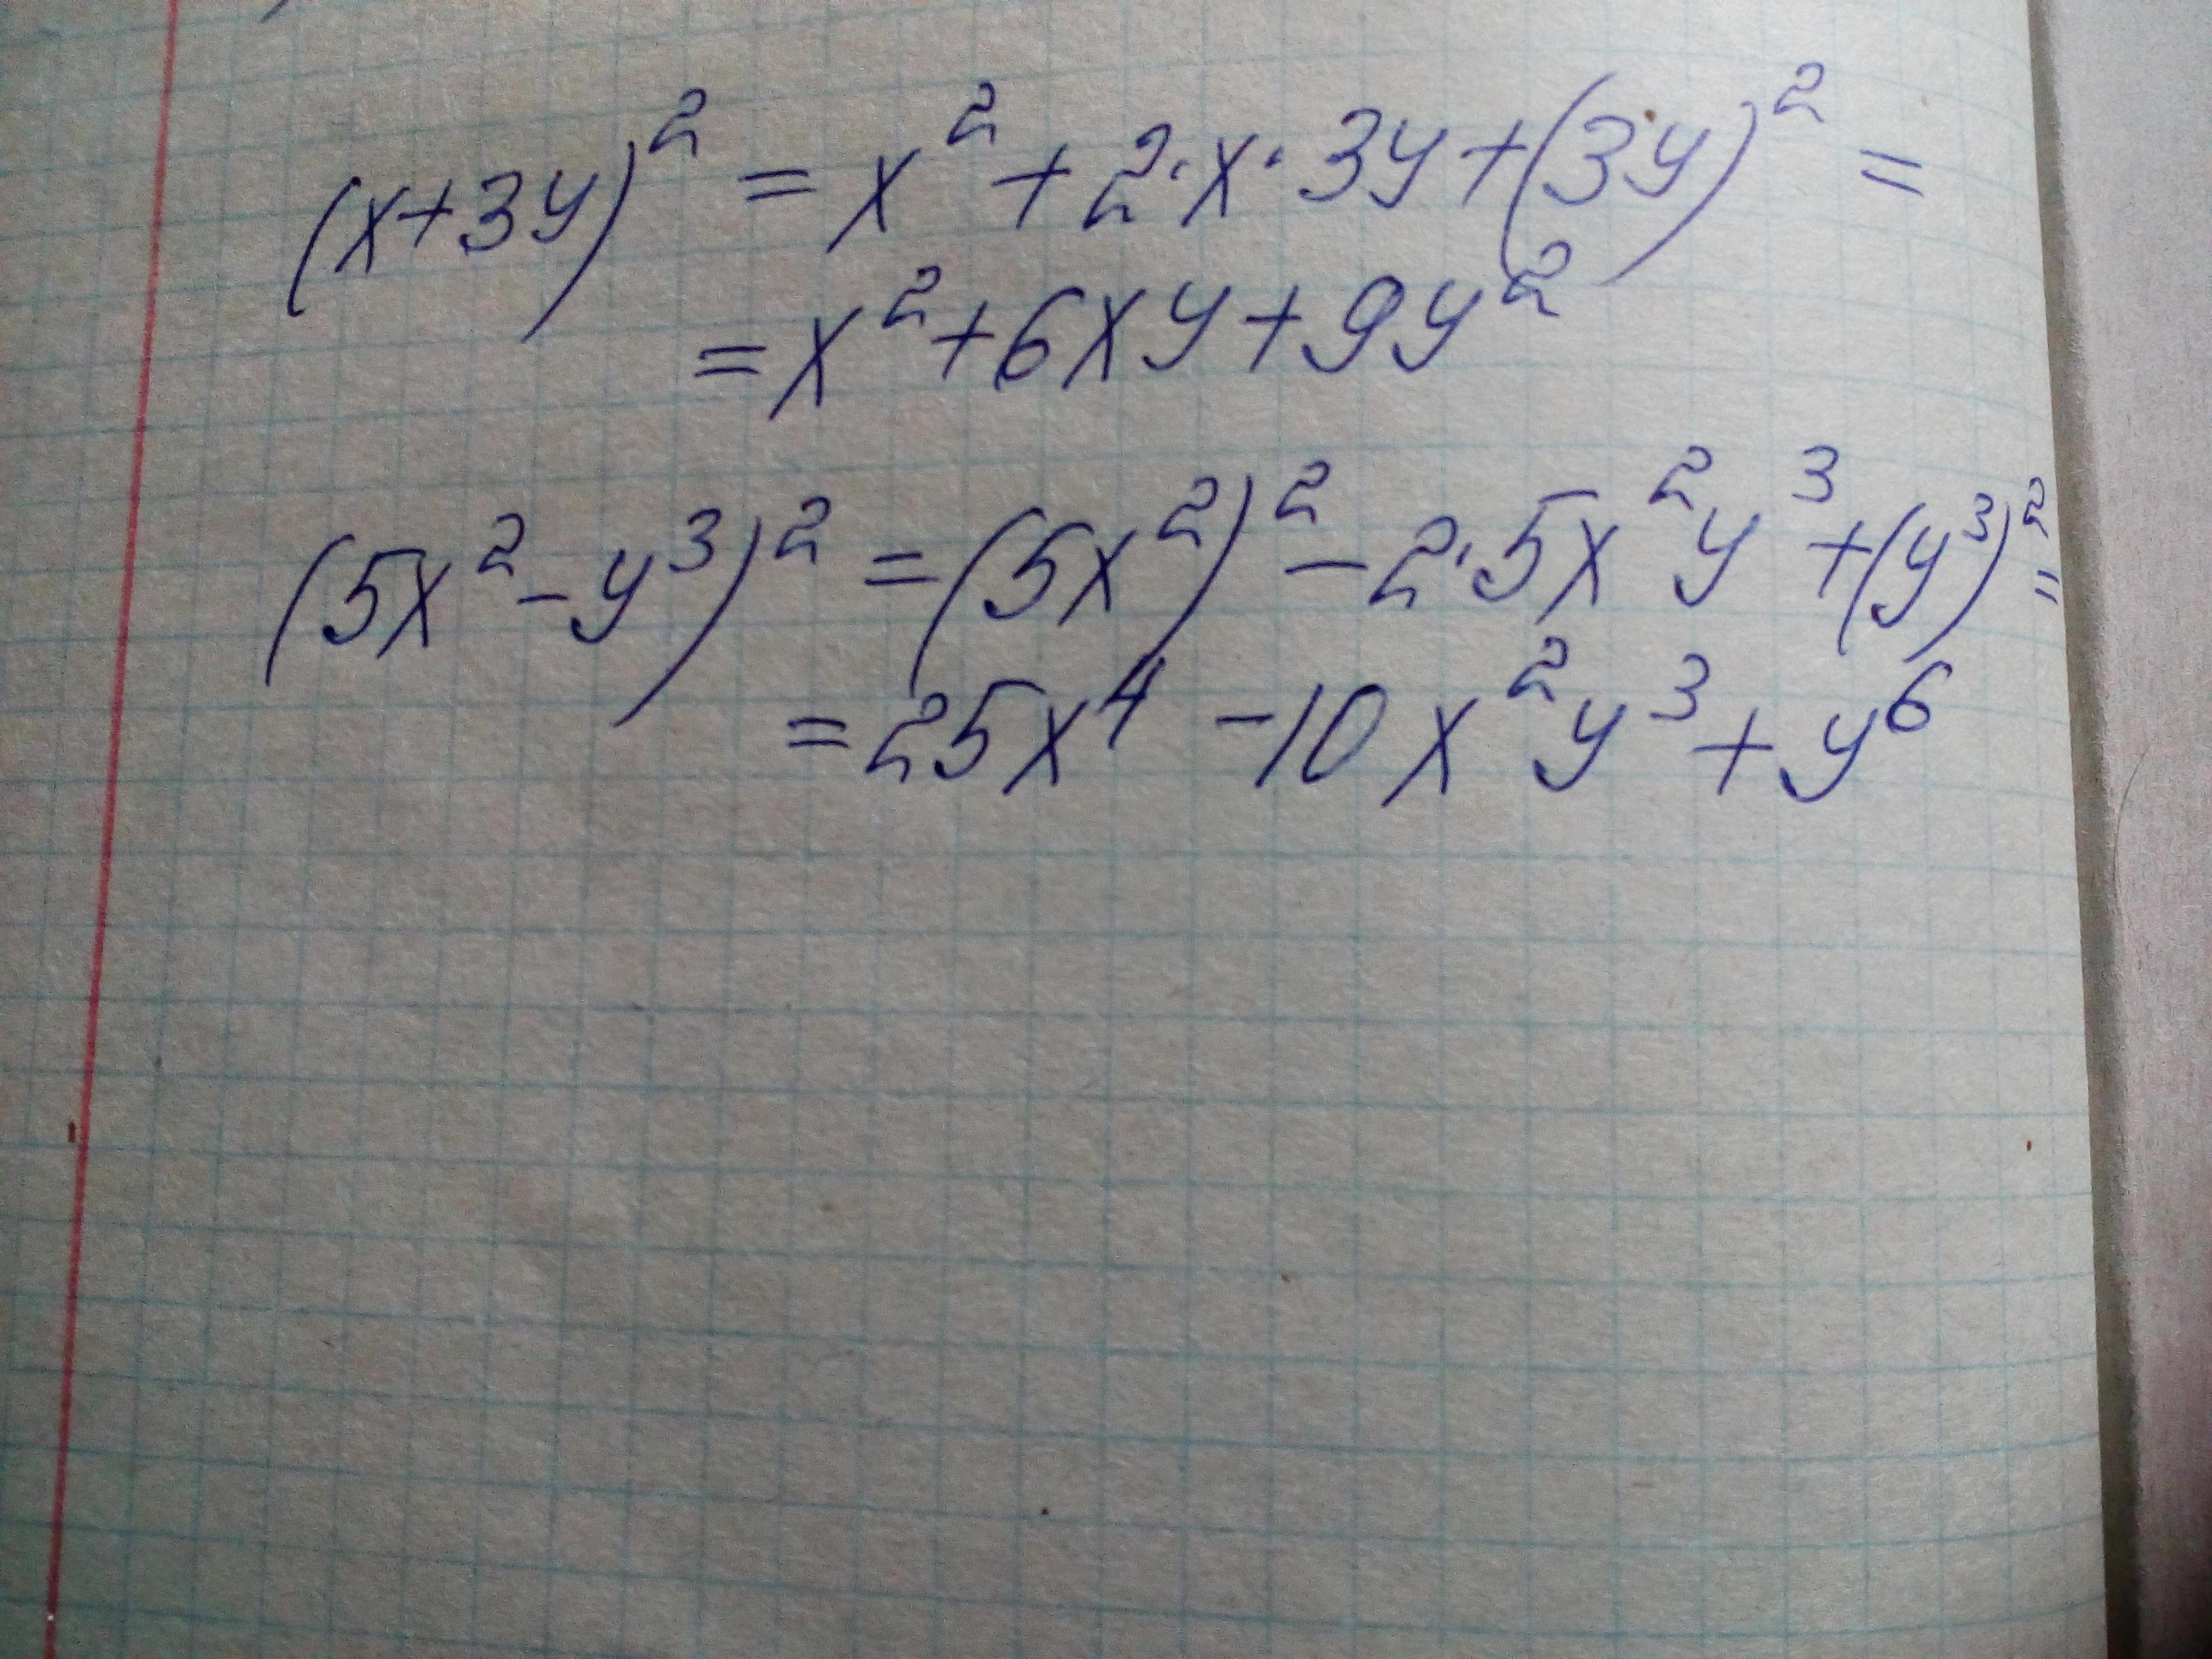 (x+3y)² = x² + 2·x·3y+(3y)² =
= x²+6xy+9y²
(5x²-y³)² = (5x²)² - 2·5x²y³+(y³)² =
= 25x⁴ -10x²y³+y⁶